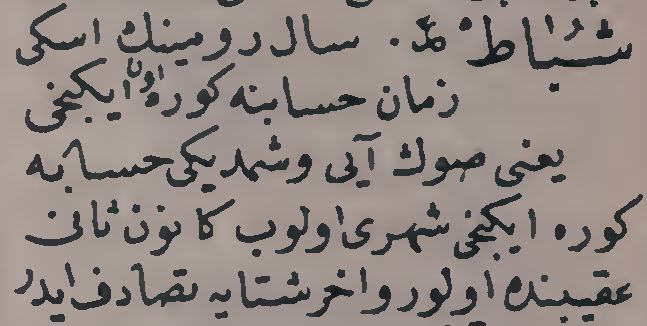 شُبَاط مذ. سال رومينك اسكى
زمان حسابنه كوره اون ايكنجى
يعنى صوك آيى وشمديكى حسابه
كوره ايكنجى شهرى اولوب كانون ثانى
عقيبنده اولور و اخر شتايه تصادف ايدر